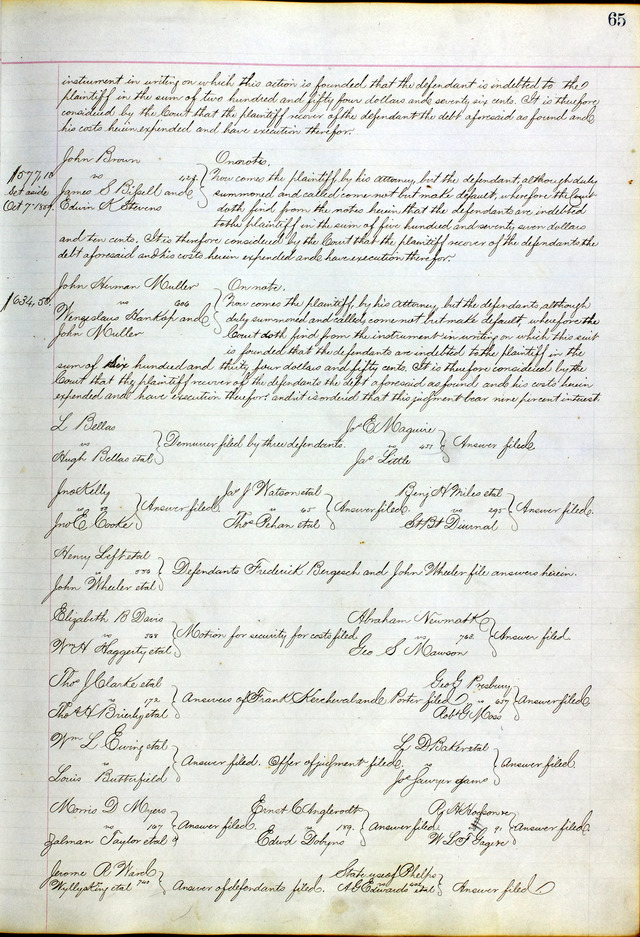 65
instrument in writing on which this action is founded that the defendant is indebted to the
plaintiff in the sum of two hundred and fifty four dollars and seventy six cents. It is therefore
considered by the Court that the plaintiff recover of the defendant the debt aforesaid as found and
his costs herein expended and have execution therefor.
John Brown On note.
$577,10 vs 424 Now comes the plaintiff, by his attorney, but the defendants, although duly
Set aside James S Bissell and summoned and called come not but make default, wherefore the Court
Oct 7th 1859. Edwin K Stevens doth find from the notes herein that the defendants are indebted
to the plaintiff in the sum of five hundred and seventy seven dollars
and ten cents. It is therefore considered by the Court that the plaintiff recover of the defendants the
debt aforesaid and his costs herein expended and have execution therefor.
John Herman Muller On note.
$634,50 vs 606 Now comes the plaintiff, by his Attorney, but the defendants, although
Wengeslaus Hankap and duly summoned and called, come not but make default, wherefore the
John Muller Court doth find from the instrument in writing on which this suit
is founded that the defendants are indebted to the plaintiff in the
sum of six hundred and thirty four dollars and fifty cents. It is therefore considered by the
Court that the plaintiff recover of the defendants the debt aforesaid as found and his costs herein
expended and have execution therefor and it is ordered that this judgment bear nine percent interest
L Bellas Jos E Maguire
vs Demurrer filed by three defendants. vs 457 Answer filed
Hugh Bellas etal Jas Little
Jno Kelly Jas J Watson etal Benj H Miles etal
vs 32 Answer filed vs 45 Answer filed. vs 295 Answer filed.
Jno E Cooke Thos Pehan etal St Bt Diurnal
Henry Leftetal
vs 550 Defendants Frederick Bergesch and John Wheeler file answers herein.
John Wheeler etal
Elizabeth B Davis Abraham Newmark
vs 568 Motion for security for costs filed vs 762 Answer filed
Wm H Haggerty etal Geo S Mawson
Thos J Clarke etal Geo G Presbury
172 Answers of Frank Kercheval and Porter filed vs 657 Answer filed
Thos H Brierly etal Robt G Moss
Wm L Ewing etal L D Baker etal
vs Answer filed. Offer of judgment filed. vs Answer filed
Louis Butterfield Jos Sawyer
Morris D Myers Ernst C Anglerodt
vs 187 Answer filed vs 189 Answer filed 91 Answer filed
Zalman Taylor etal Edwd Dobyns
Jerome R Ward State use of Phelps
Wylly King etal 740 Answer of defendants filed. A G Edwards etal Answer filed